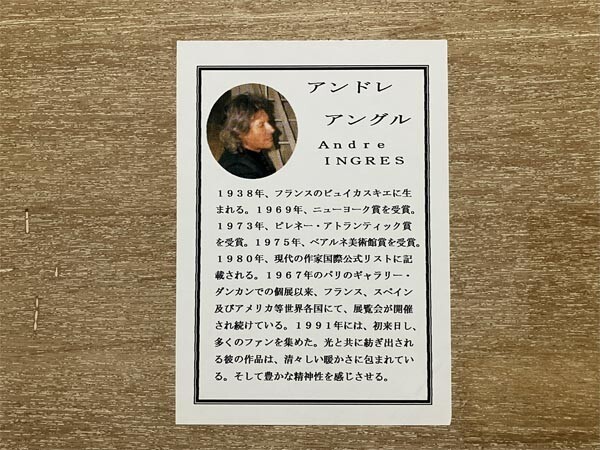 アンドレ
アングル
Ａｎｄｒｅ
ＩＮＧＲＥＳ
１９３８年、フランスのピュイカスキエに生
まれる。１９６９年、ニューヨーク賞を受賞。
１９７３年、ピレネー・アトランティック賞
を受賞。１９７５年、ベアルネ美術館賞を受賞。
１９８０年、現代の作家国際公式リストに記
載される。１９６７年のパリのギャラリー・
ダンカンでの個展以来、フランス、スペイン
及びアメリカ等世界各国にて、展覧会が開催
され続けている。１９９１年には、初来日し、
多くのファンを集めた。光と共に紡ぎ出され
る彼の作品は、清々しい暖かさに包まれてい
る。そして豊かな精神性を感じさせる。